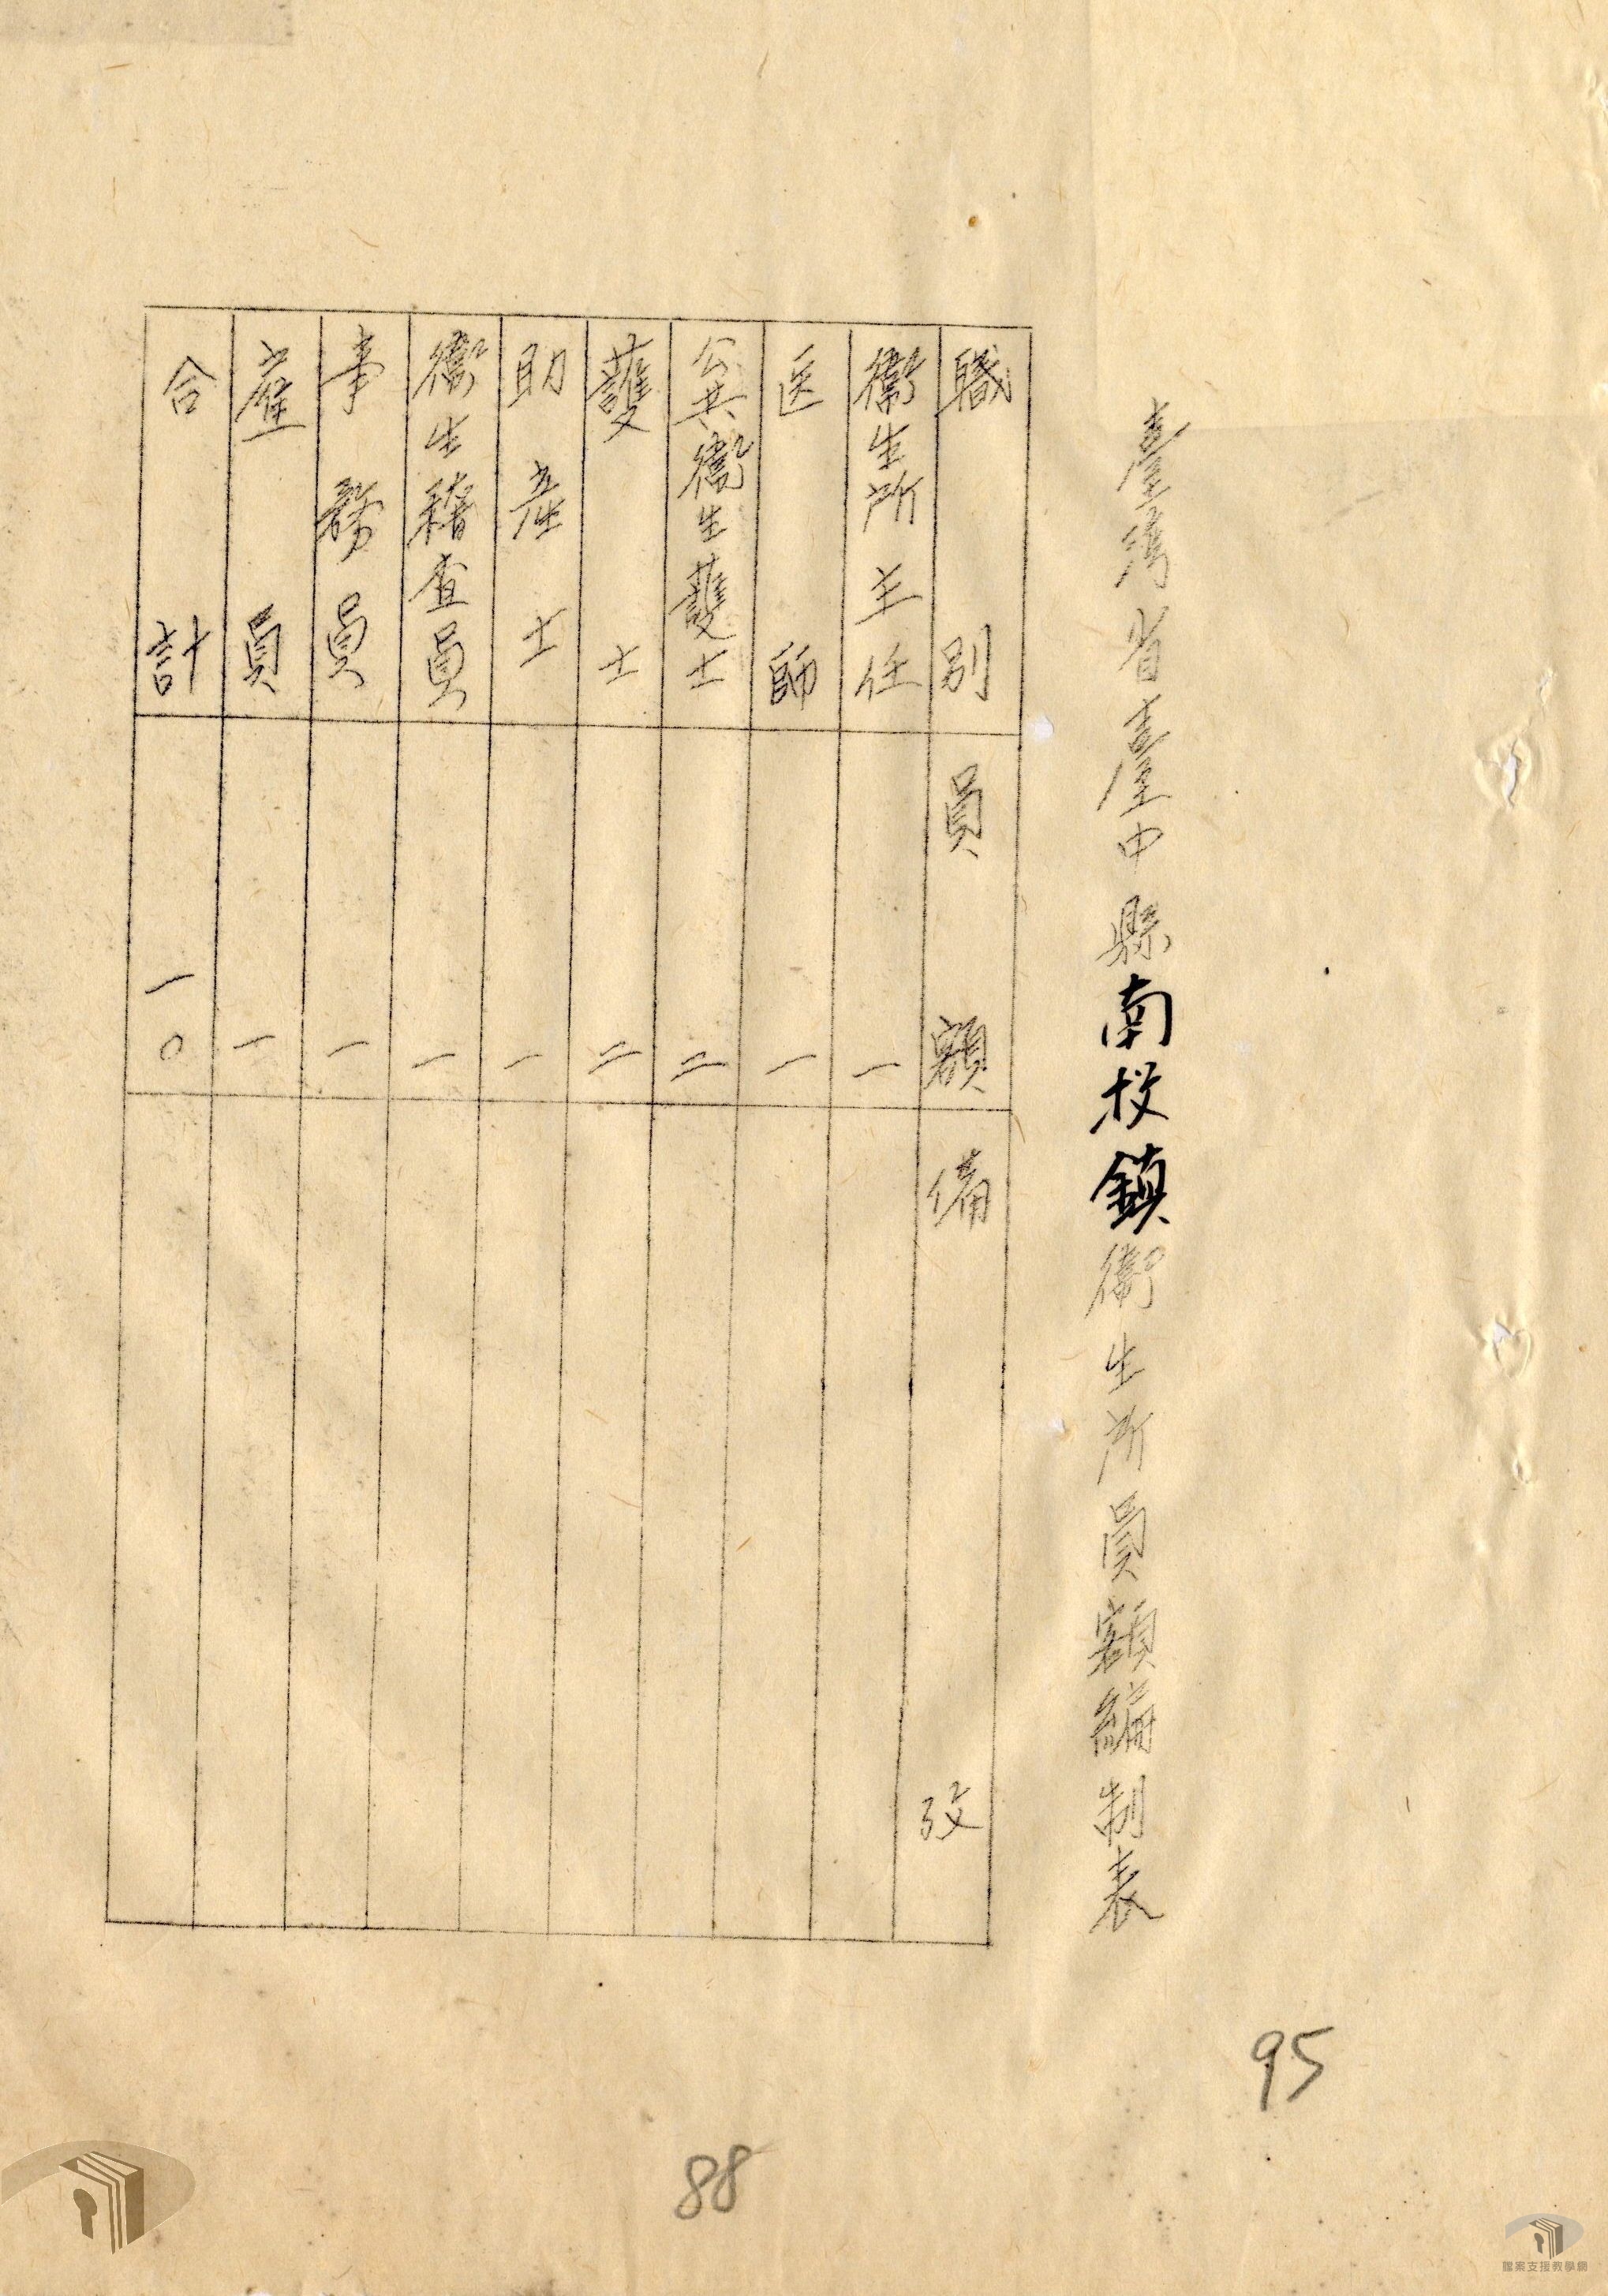 臺灣省臺中縣南投鎮衛生所員額編制表
職別 員額 備攷
衛生所主任 一
医師 一
公共衛生護士 二
護士 二
助產士 一
衛生稽查員 一
事務員 一
雇員 一
合計 一〇
95
88
檔案支援教學網